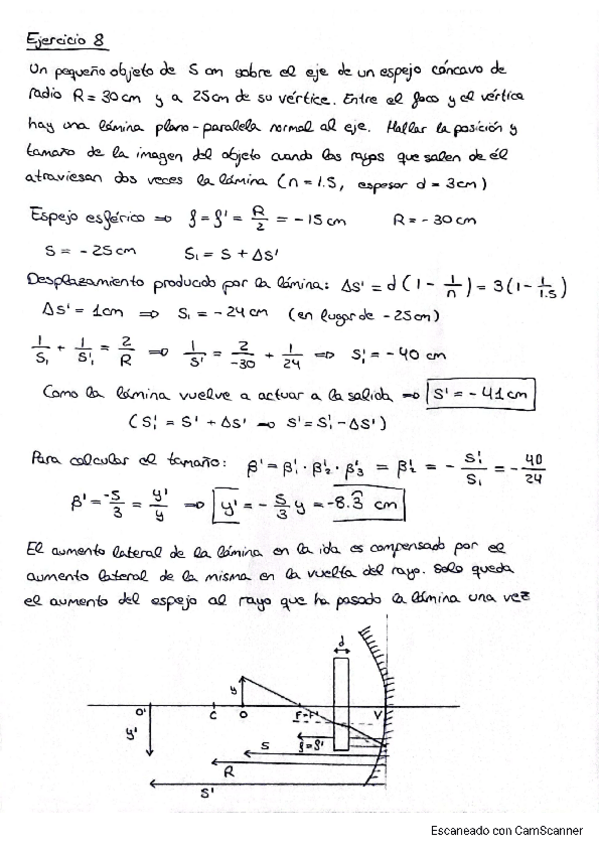 Ejercicio 8
Un pequeño objeto de 5 cm sobre el eje de un espejo cóncavo de
radio R = 30 cm y a 25 cm de su vértice. Entre el foco y el vértice
hay una lámina plano-paralela normal al eje. Hallar la posición y
tamaño de la imagen del objeto cuando los rayos que salen de él
atraviesan dos veces la lámina (n = 1.5, espesor d = 3cm)
Espejo esférico ⇒ f = f' = R/2 = -15 cm R = -30 cm
S = -25 cm S₁ = S + ΔS'
Desplazamiento producido por la lámina: ΔS' = d(1 - 1/n) = 3(1 - 1/1.5)
ΔS' = 1cm ⇒ S₁ = -24 cm (en lugar de -25cm)
1/S₁ + 1/S'₁ = 2/R ⇒ 1/S' = 2/-30 + 1/24 ⇒ S'₁ = -40 cm
Como la lámina vuelve a actuar a la salida ⇒ S' = -41 cm
(S'₁ = S' + ΔS' ⇒ S' = S'₁ - ΔS')
Para calcular el tamaño: β' = β'₁ · β'₂ · β'₃ = β'₂ = - S'₁/S₁ = - 40/24
β' = -5/3 = y'/y ⇒ y' = - 5/3 y = -8.3̂ cm
El aumento lateral de la lámina en la ida es compensado por el
aumento lateral de la misma en la vuelta del rayo. Solo queda
el aumento del espejo al rayo que ha pasado la lámina una vez
d
y
O' C O F=F' V
y'
f=f'
S
R
S'
Escaneado con CamScanner